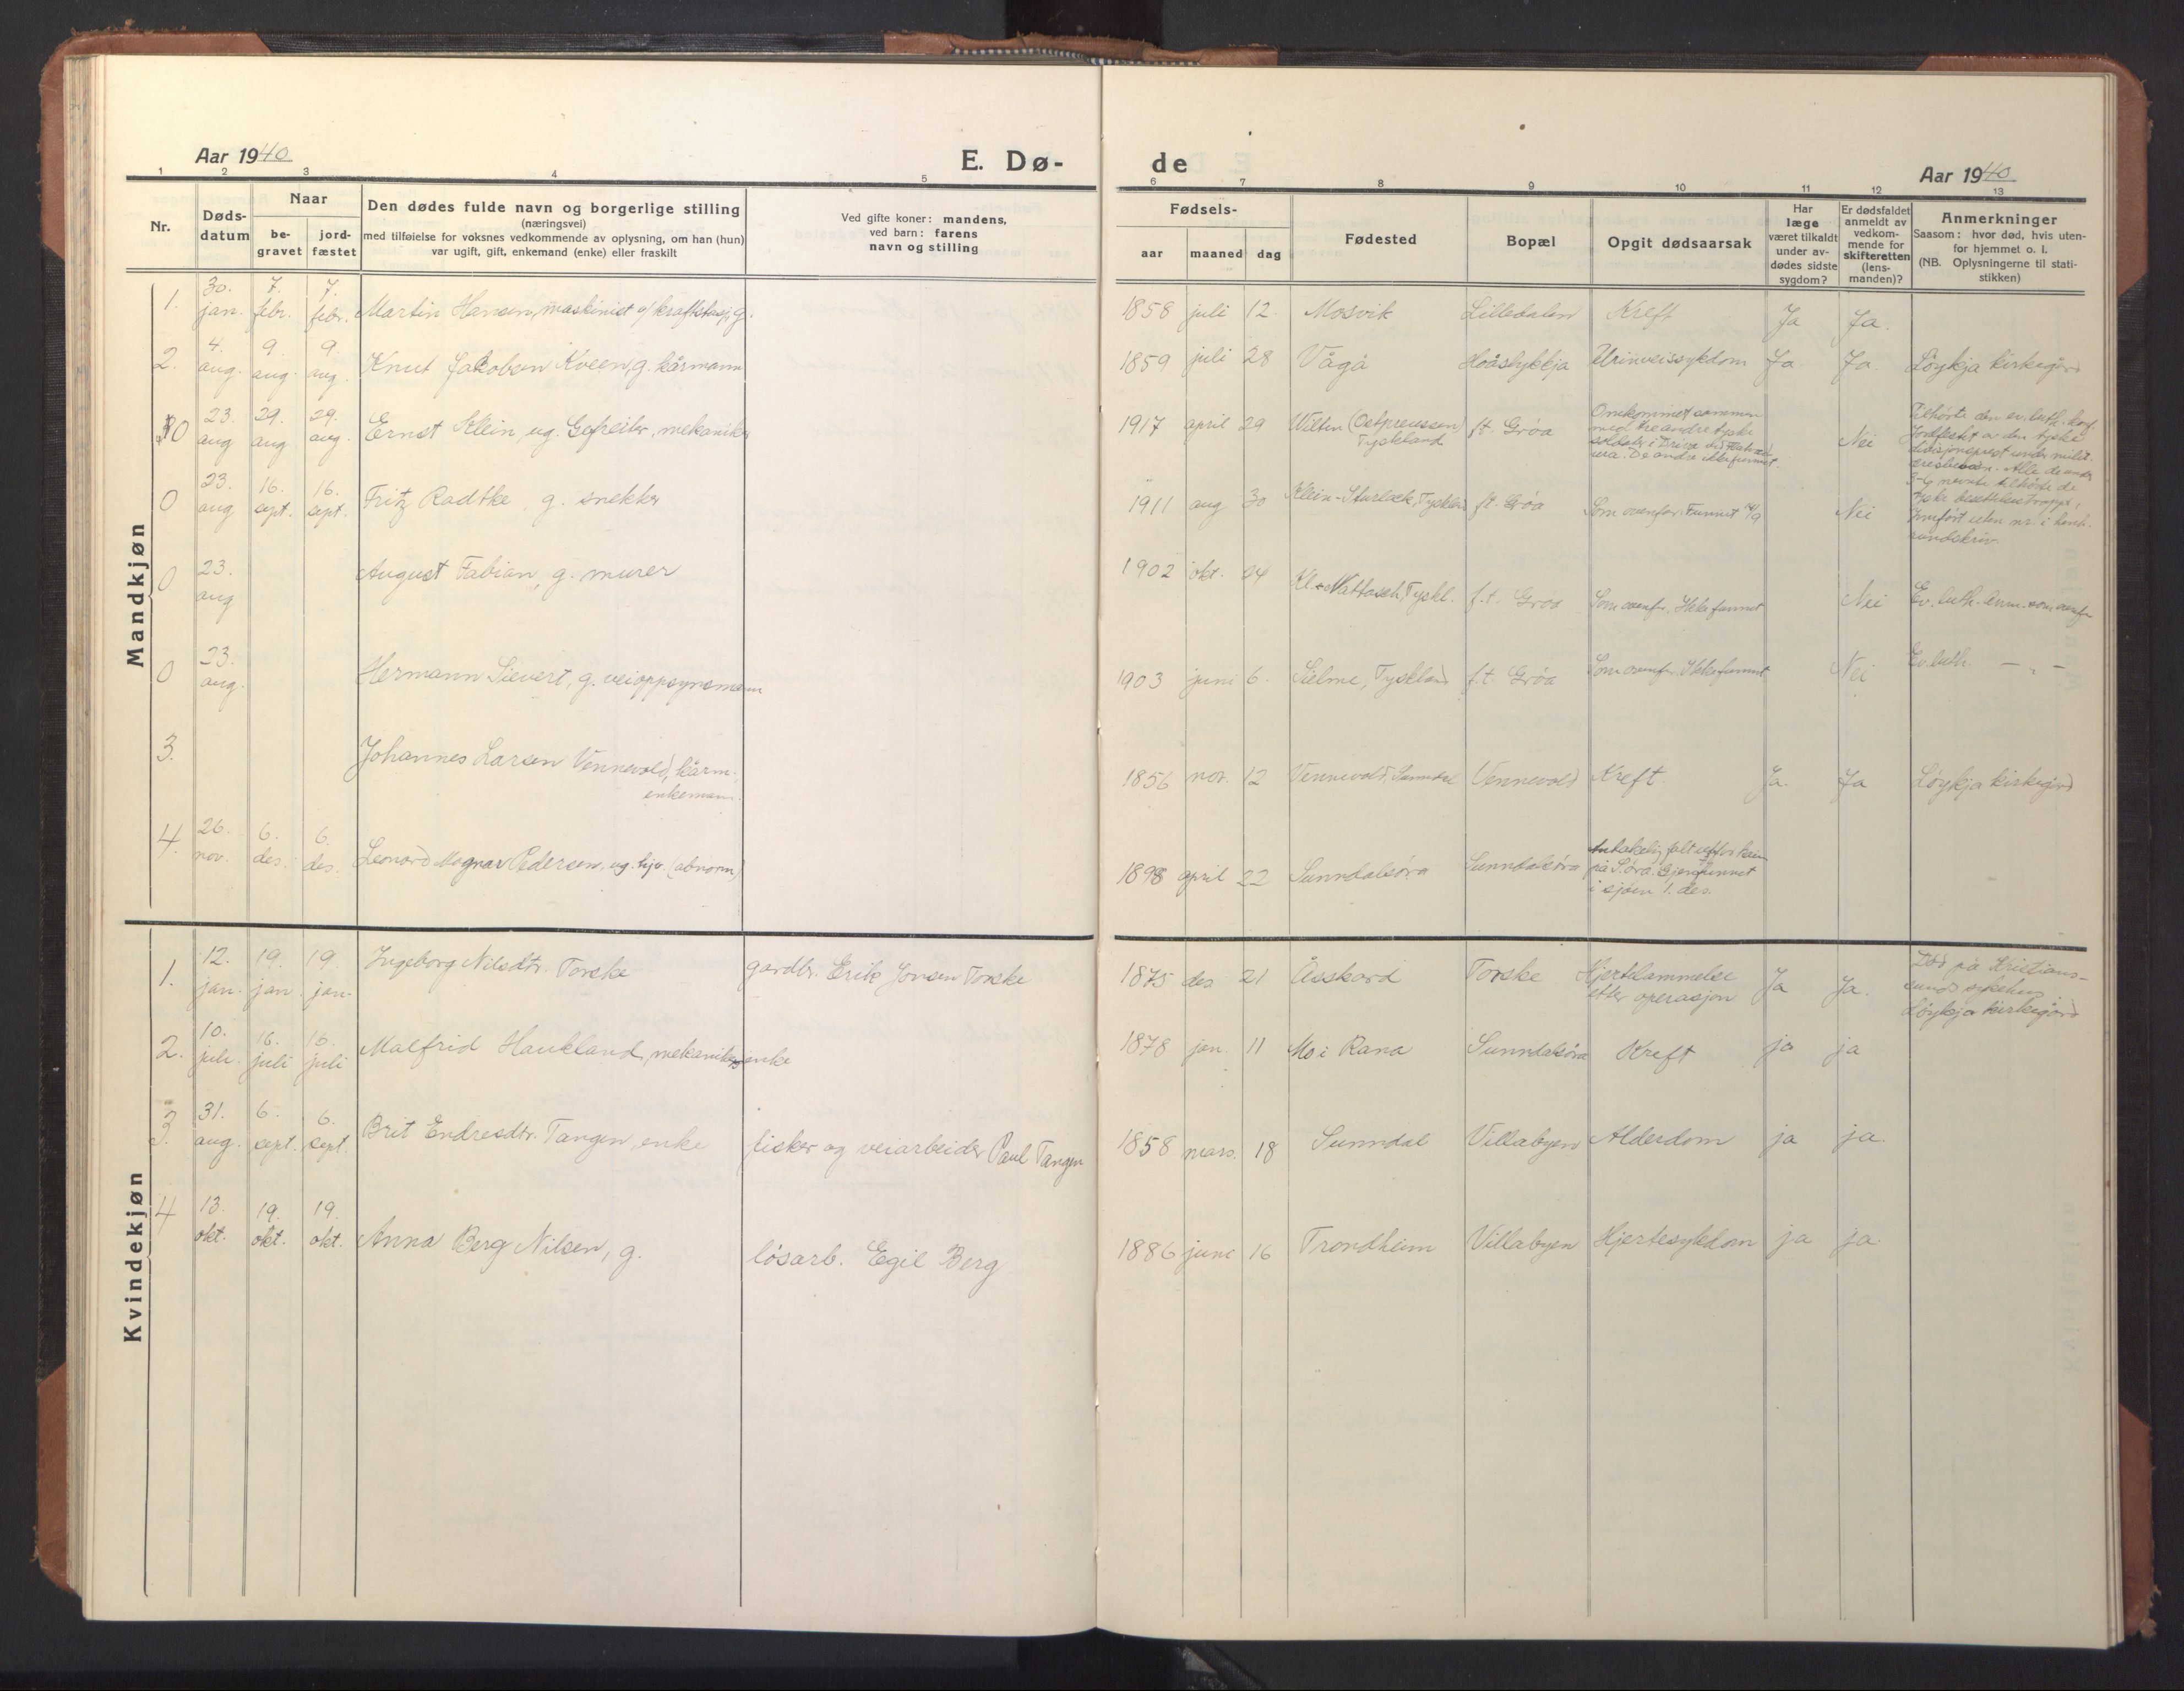 Aar 1940
E. Dø-
1 2 3 4 5
Nr.
Døds-
datum
Naar
be-
gravet
jord-
fæstet
Den dødes fulde navn og borgerlige stilling
(næringsvei)
med tilføielse for voksnes vedkommende av oplysning, om han (hun)
var ugift, gift, enkemand (enke) eller fraskilt
Ved gifte koner: mandens,
ved barn: farens
navn og stilling
Mandkjøn
1. 30. jan. 7. febr. 7. febr. Martin Hansen, maskinist v/ kraftstasj. g.
2. 4. aug. 9. aug. 9. aug. Knut Jakobsen Kveen, g. kårmann
0 23. aug 29. aug. 29. aug. Ernst Klein, ug. Gefreiter, mekaniker
0 23. aug 16. sept. 16. sept. Fritz Radtke, g. snekker
0 23. aug August Fabian, g. murer
0 23. aug. Hermann Sievert, g. veioppsynsmann
3. Johannes Larsen Vennevold, kårm.,
enkemann.
4. 26. nov. 6. des. 6. des. Leonard Magnar Pedersen, ug. hjv. (abnorm)
Kvindekjøn
1. 12. jan. 19. jan. 19. jan. Ingeborg Nilsdtr. Torske gardbr. Erik Jonsen Torske
2. 10. juli. 16. juli 16. juli Malfrid Haukland, mekanikerenke
3. 31. aug. 6. sept. 6. sept. Brit Endresdtr. Tangen, enke fisker og veiarbeider Paul Tangen
4 13. okt. 19. okt. 19. okt. Anna Berg Nilsen, g. løsarb. Egil Berg
de
Aar 1940
6 7 8 9 10 11 12 13
Fødsels-
aar maaned dag
Fødested
Bopæl
Opgit dødsaarsak
Har
læge
været tilkaldt
under av-
dødes sidste
sygdom?
Er dødsfaldet
anmeldt av
vedkom-
mende for
skifteretten
(lens-
manden)?
Anmerkninger
Saasom: hvor død, hvis uten-
for hjemmet o. l.
(NB. Oplysningerne til stati-
stikken)
1858 juli 12. Mosvik Lilledalen Kreft Ja Ja.
1859 juli 28 Vågå Hoåslykkja Urinveissykdom Ja Ja. Løykja kirkegård
1917 april 29 Wilten (Ostpreussen)
Tyskland
ft. Grøa
Omkommet sammen
med tre andre tyske
soldater i Driva ved
ura. De andre ikke funnet.
Nei
Tilhørte den ev. luth. konf.
Jordfestet av den tyske
divisjonsprest under milit.
æresbevisn. Alle de under
nevnte tilhørte de
tyske besettelsestropper,
Innført uten nr. i henh.
rundskriv.
1911 aug 30 Klein-Sturlack, Tyskland ft. Grøa Som ovenfor. Funnet Nei
1902 okt. 24 Kl. Nattasch, Tyskl. f.t. Grøa Som ovenfor. Ikke funnet Nei Ev. luth. Anm. som ovenfor
1903 juni 6. Selme, Tyskland f.t. Grøa Som ovenfor. Ikke funnet Nei Ev. luth. — „ —
1856 nov. 12 Vennevold, Sunndal Vennevold Kreft Ja. Ja Løykja kirkegård
1898 april 22 Sunndalsøra Sunndalsøra
falt utfor kaien
på S.øra. Gjenfunnet
i sjøen 1. des.
1875 des 21 Åsskard Torske Hjertelammelse
etter operasjon
Ja Ja.
Død på Kristians-
sunds sykehus
Løykja kirkegård
1878 jan. 11 Mo i Rana Sunndalsøra Kreft ja ja
1858 mars. 18 Sunndal Villabyen Alderdom ja ja.
1886 juni 16 Trondheim Villabyen Hjertesykdom ja ja.